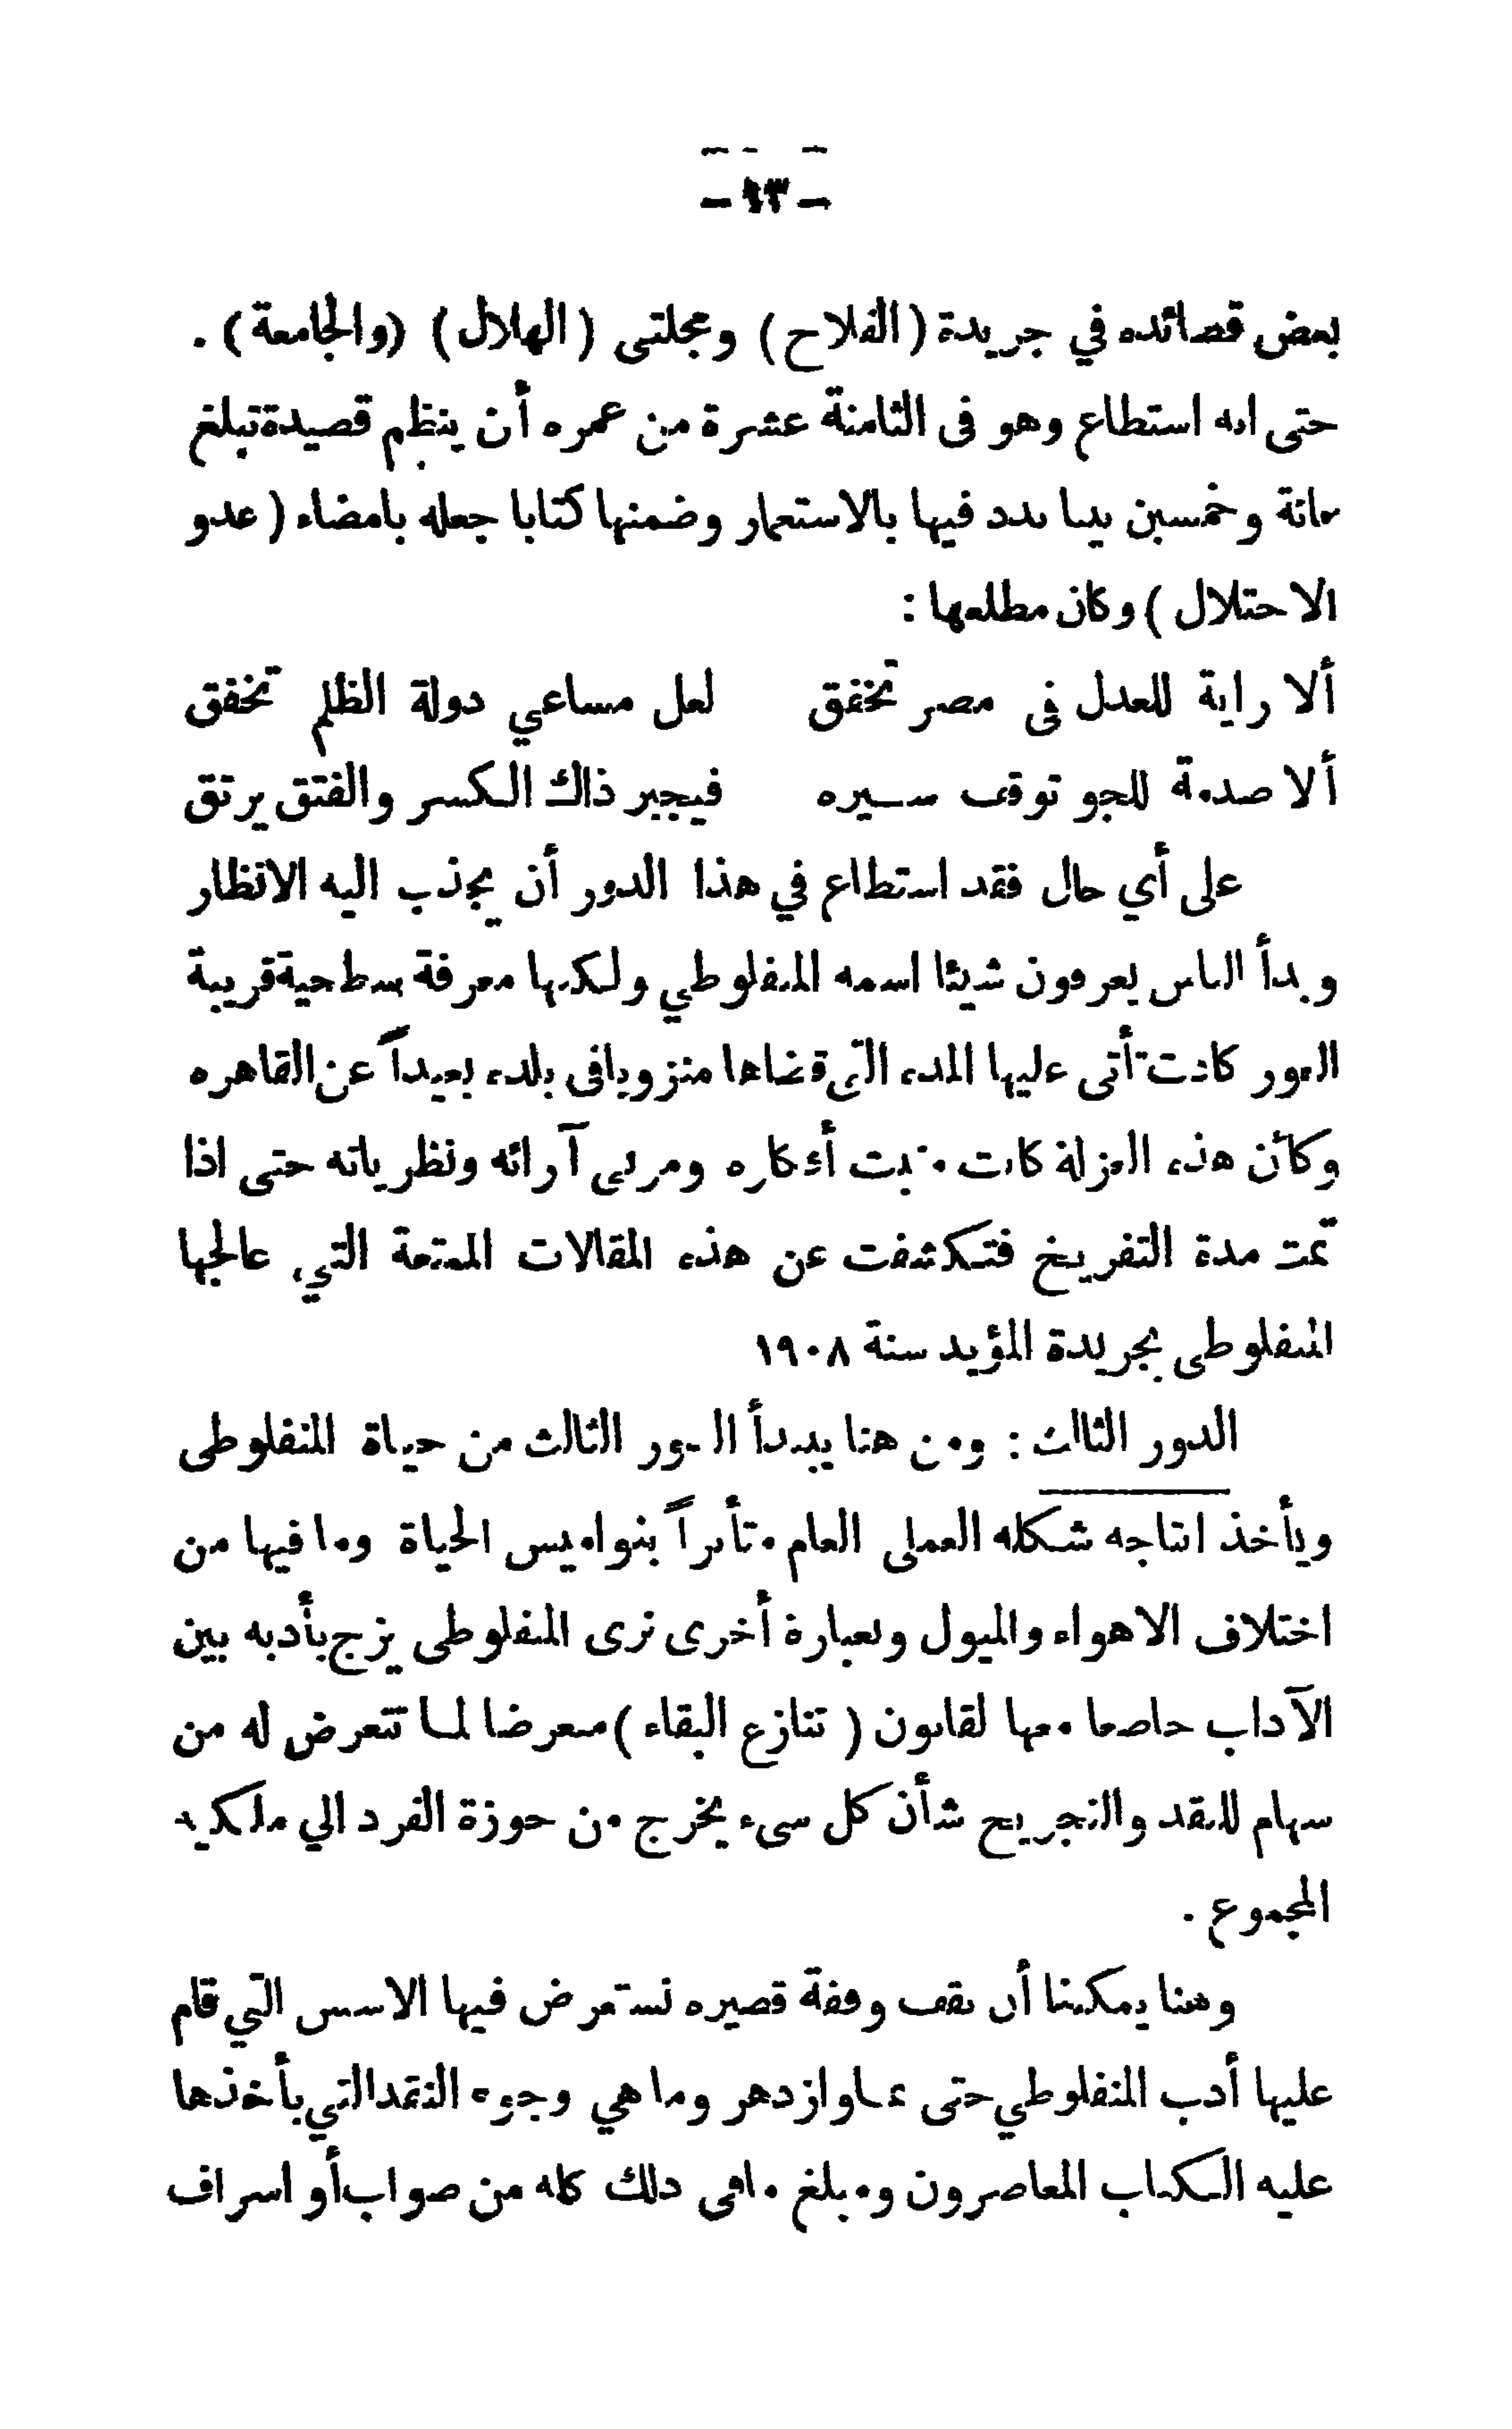 – ٩٣ –
بعض قصائده في جريدة (الفلاح) ومجلتى (الهلال) (والجامعة) .
حتى انه استطاع وهو فى الثامنة عشرة من عمره أن ينظم قصيدة تبلغ
مائة وخمسين بيتا ندد فيها بالاستعمار وضمنها كتابا جعله بامضاء (عدو
الاحتلال) وكان مطلعها :
ألا راية للعدل فى مصر تخفق لعل مساعي دولة الظلم تخفق
ألا صدمة للجو توقف سيره فيجبر ذاك الكسر والفتق يرتق
على أي حال فقد استطاع في هذا الدور أن يجذب اليه الانظار
وبدأ الناس يعرفون شيئا اسمه المنفلوطي ولكنها معرفة سطحية قريبة
الغور كانت تأتى عليها المدة التي قضاها منزويا فى بلده بعيداً عن القاهره
وكأن هذه العزلة كانت منبت أفكاره ومربى آرائه ونظرياته حتى اذا
تمت مدة التفريخ فتكشفت عن هذه المقالات الممتعة التي، عالجها
المنفلوطى بجريدة المؤيد سنة ١٩٠٨
الدور الثالث : ومن هنا يبدأ الدور الثالث من حياة المنفلوطى
ويأخذ انتاجه شكله العملى العام متأثراً بنواميس الحياة وما فيها من
اختلاف الاهواء والميول وبعبارة أخرى نرى المنفلوطى يزج بأدبه بين
الآداب خاضعا معها لقانون (تنازع البقاء) معرضا لما تتعرض له من
سهام للنقد والتجريح شأن كل شىء يخرج من حوزة الفرد الي ملكية
المجموع .
وهنا يمكننا أن نقف وقفة قصيره نستعرض فيها الاسس التي قام
عليها أدب المنفلوطي حتى نما وازدهر وما هي وجوه النقد التي يأخذها
عليه الكتاب المعاصرون ومبلغ مافى ذلك كله من صواب أو اسراف